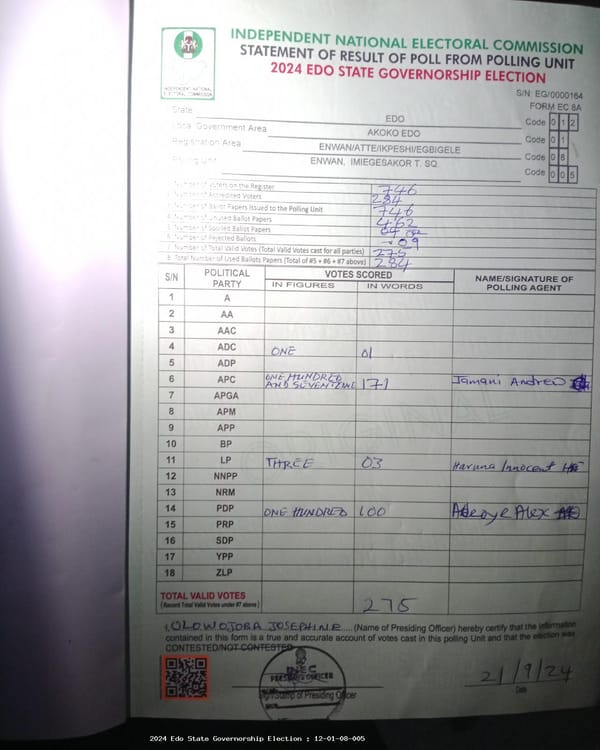 INDEPENDENT NATIONAL ELECTORAL COMMISSION
STATEMENT OF RESULT OF POLL FROM POLLING UNIT
2024 EDO STATE GOVERNORSHIP ELECTION
INDEPENDENT NATIONAL ELECTORAL COMMISSION
S/N: EG/0000164
FORM EC 8A
State EDO Code 0 1 2
Local Government Area AKOKO EDO Code 0 1
Registration Area ENWAN/ATTE/IKPESHI/EGBIGELE Code 0 8
Polling Unit ENWAN, IMIEGESAKOR T. SQ. Code 0 0 5
Number of Voters on the Register 746
Number of Accredited Voters 284
Number of Ballot Papers Issued to the Polling Unit 746
Number of Unused Ballot Papers 462
Number of Spoiled Ballot Papers
Number of Rejected Ballots 09
7. Number of Total Valid Votes (Total Valid Votes cast for all parties) 275
8. Total Number of Used Ballots Papers (Total of #5 + #6 + #7 above) 284
S/N POLITICAL PARTY VOTES SCORED NAME/SIGNATURE OF POLLING AGENT
IN FIGURES IN WORDS
1 A
2 AA
3 AAC
4 ADC ONE 01
5 ADP
6 APC ONE HUNDRED AND SEVENTY ONE 171 Jamani Andrew
7 APGA
8 APM
9 APP
10 BP
11 LP THREE 03 Haruna Innocent
12 NNPP
13 NRM
14 PDP ONE HUNDRED 100 Adeoye Alex
15 PRP
16 SDP
17 YPP
18 ZLP
TOTAL VALID VOTES
(Record Total Valid Votes under #7 above) 275
I, OLOWOJOBA JOSEPHINE (Name of Presiding Officer) hereby certify that the information
contained in this form is a true and accurate account of votes cast in this polling Unit and that the election was
CONTESTED/NOT CONTESTED
INEC
PRESIDING OFFICER
Sign/Stamp of Presiding Officer
21/9/24
Date
2024 Edo State Governorship Election : 12-01-08-005